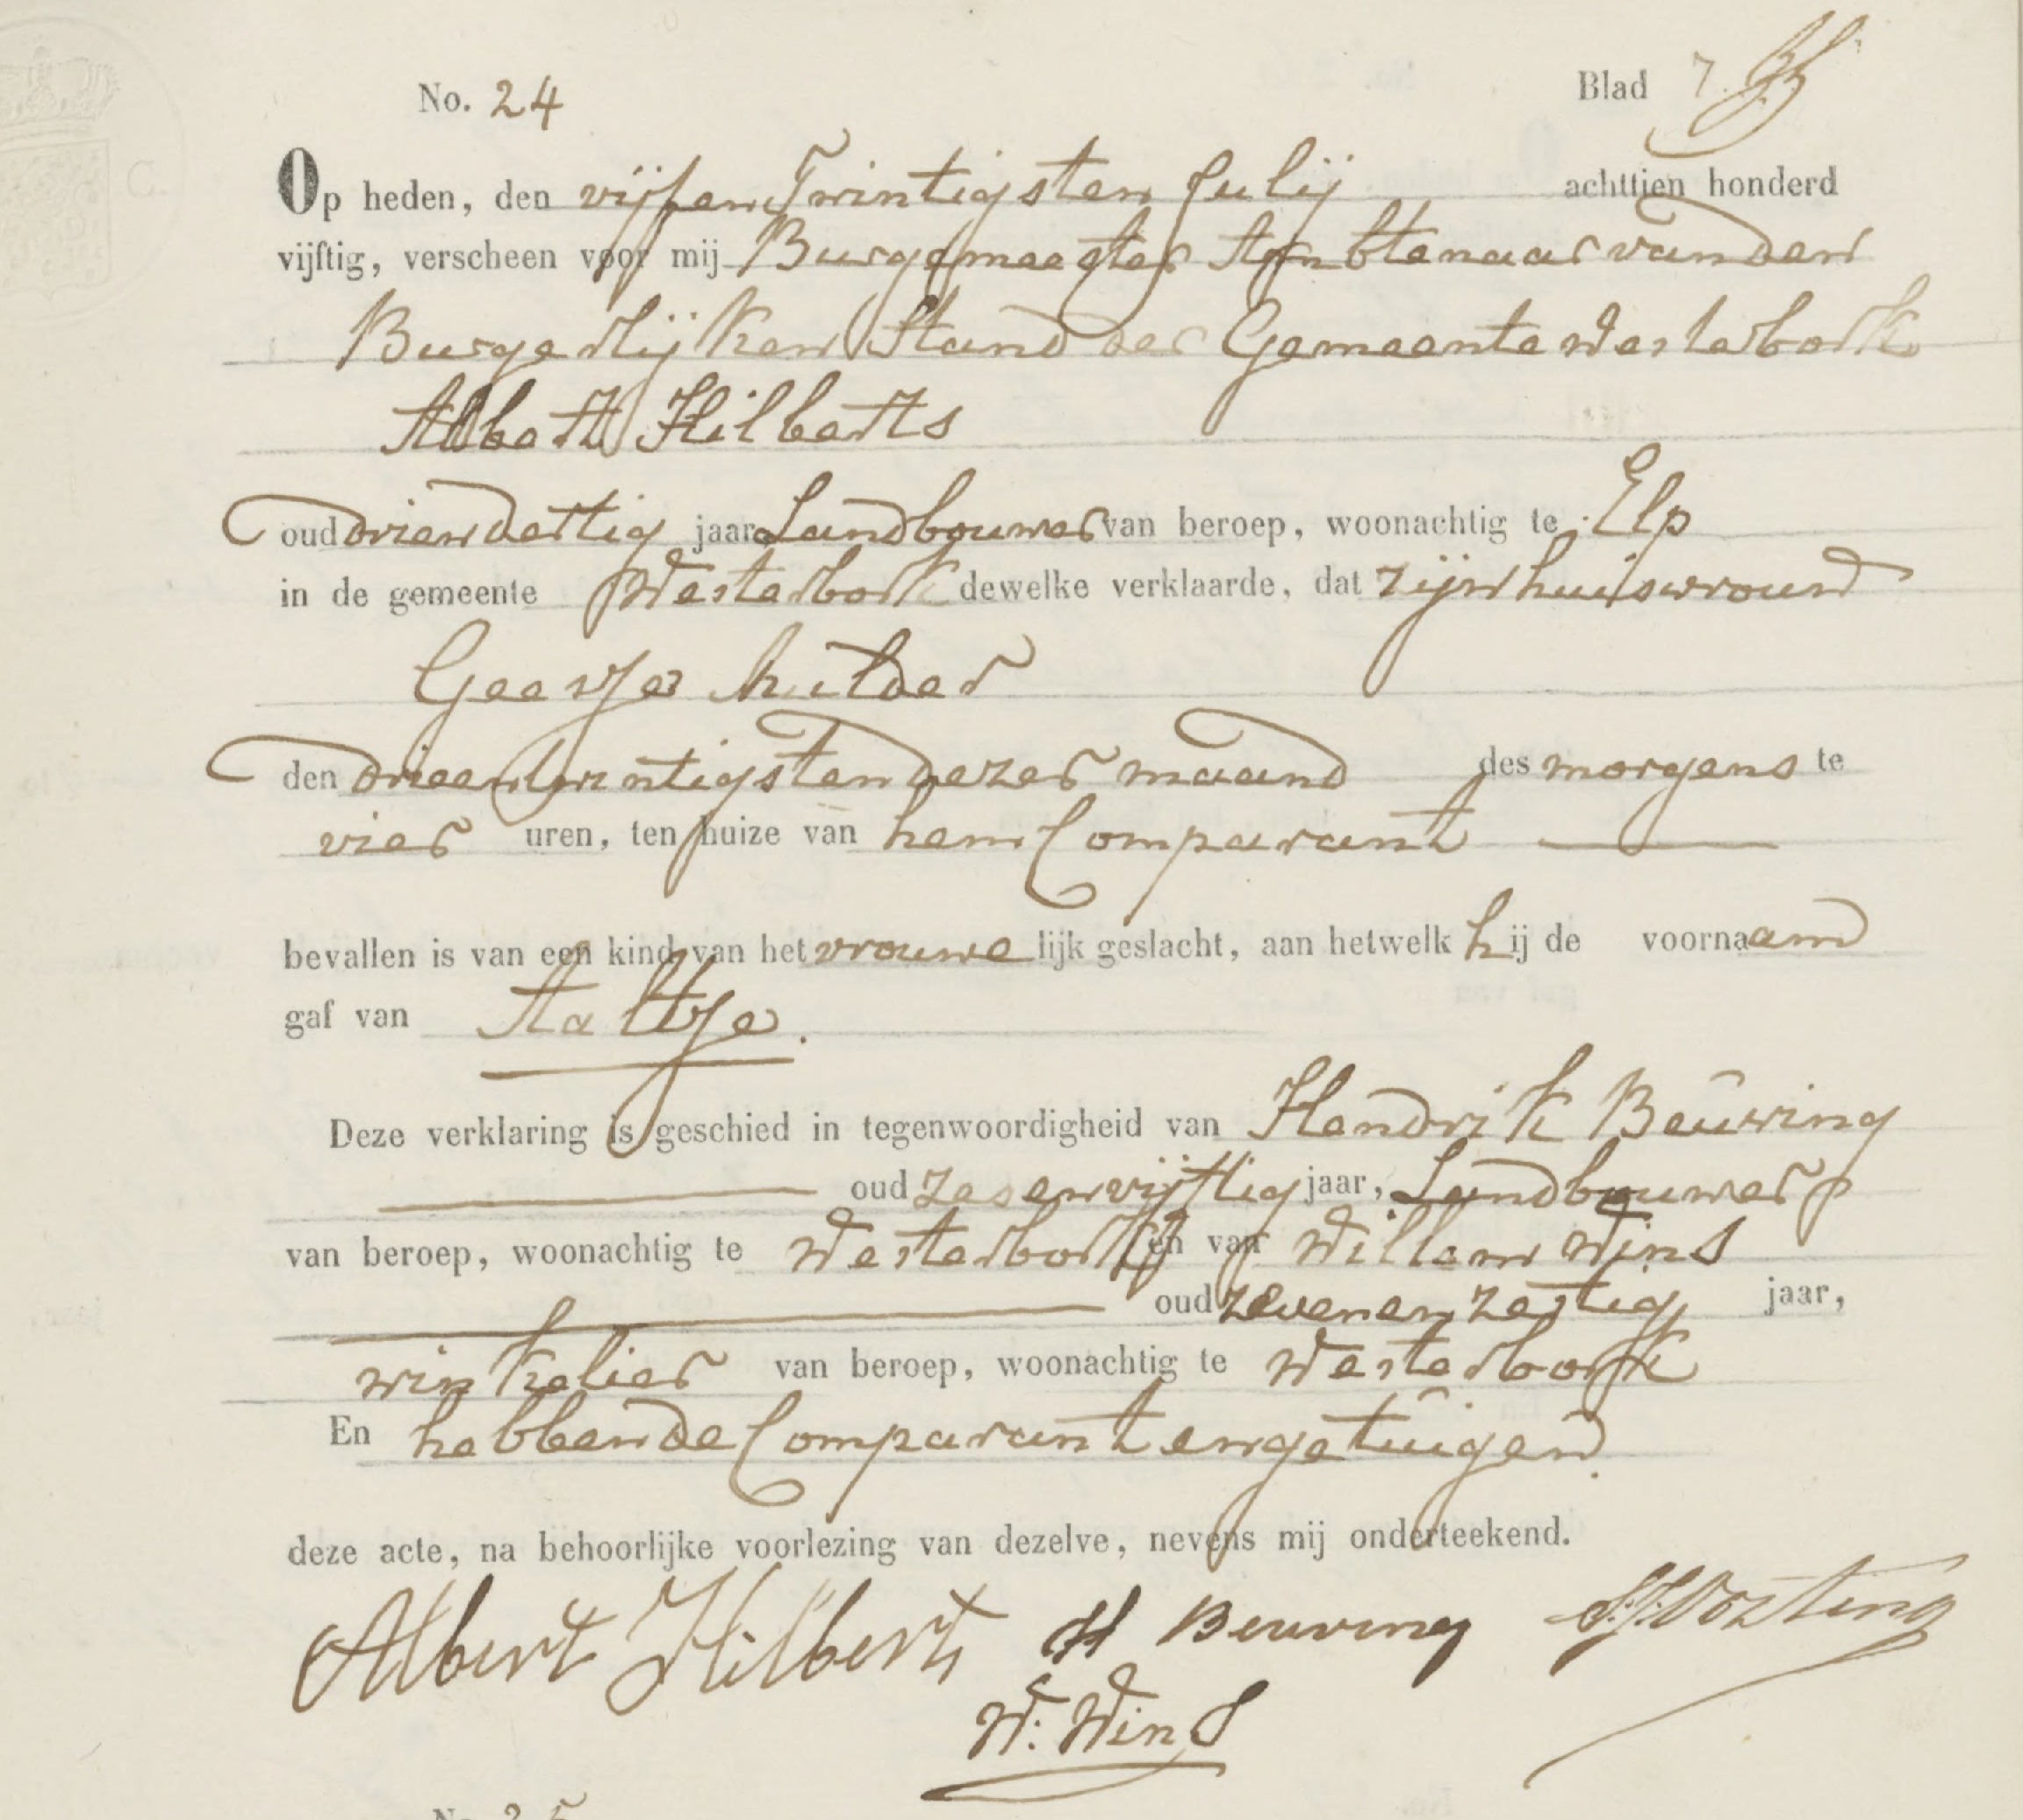 No. 24 Blad 7.
Op heden, den vijfen Twintigsten Julij achttien honderd
vijftig, verscheen voor mij Burgemeester Ambtenaar van den
Burgerlijken Stand der Gemeente Westerbork
Albert Hilberts
oud drienDertig jaar Landbouwer van beroep, woonachtig te Elp
in de gemeente Westerbork dewelke verklaarde, dat zijn huisvrouw
Geesje Mulder
den drieentwintigsten dezer maand des morgens te
vier uren, ten huize van hem Comparant
bevallen is van een kind van het vrouwelijk geslacht, aan hetwelk hij de voornaam
gaf van Aaltje.
Deze verklaring is geschied in tegenwoordigheid van Hendrik Beuving
oud zesenvijftig jaar, Landbouwer
van beroep, woonachtig te Westerbork en van Willem Wind
oud zevenenzestig jaar,
winkelier van beroep, woonachtig te Westerbork
En hebben de Comparant en getuigen
deze acte, na behoorlijke voorlezing van dezelve, nevens mij onderteekend.
Albert Hilberts H Beuving Oosting
W: Wind
No. 25